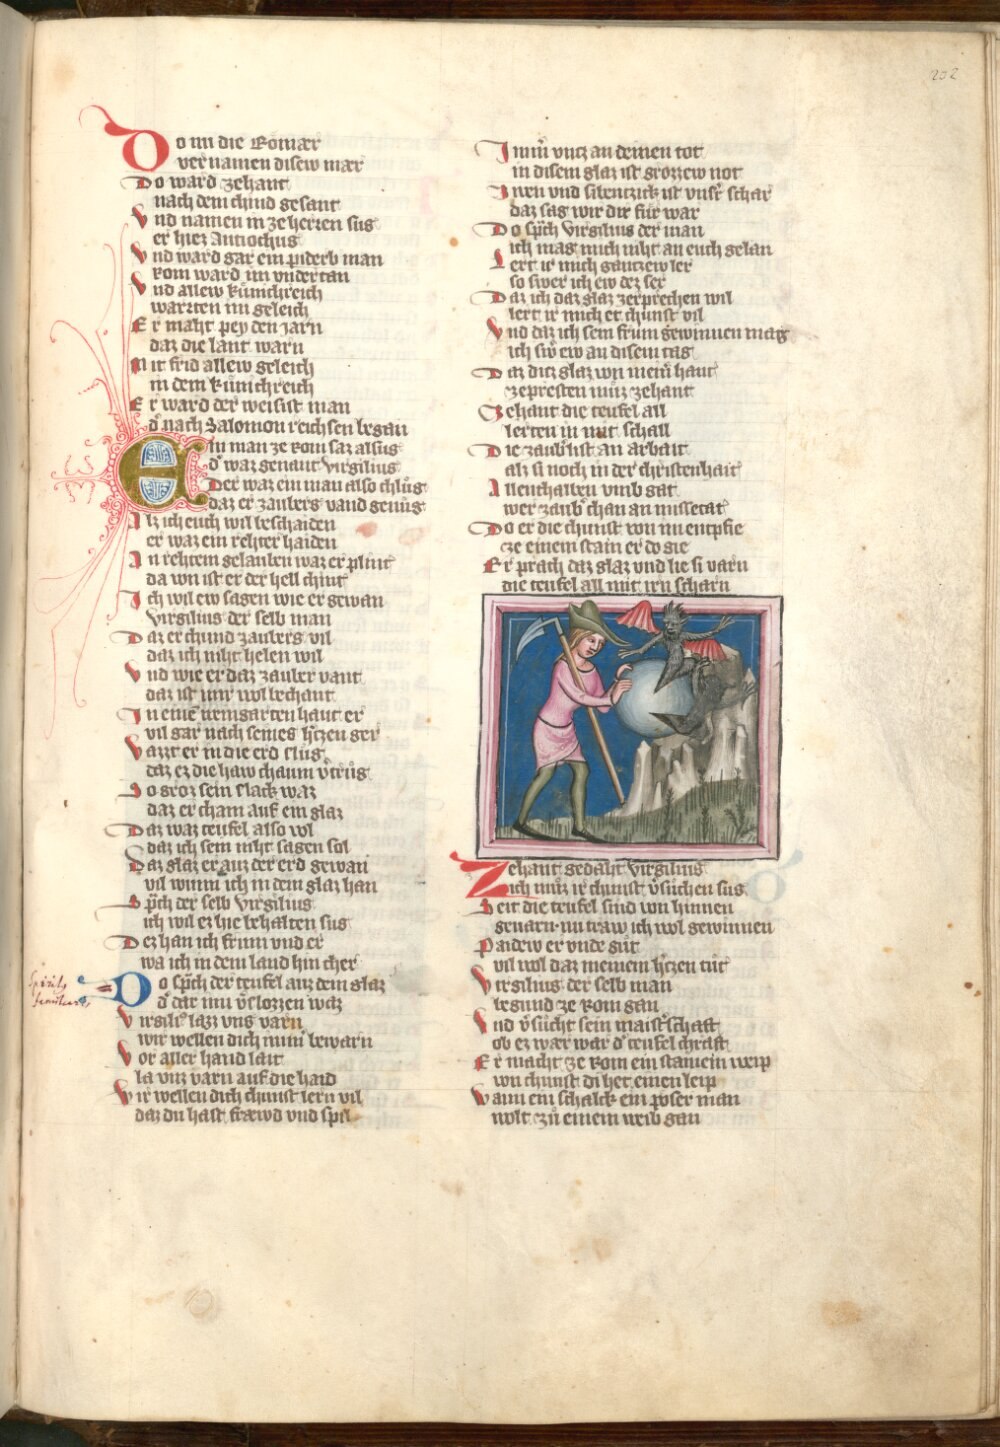 202
Do nu die Romær
vernamen disew mær
Do ward zehant
nach dem chind gesant
Vnd namen in ze herren sus
er hiez Antiochus
Vnd ward gar ein piderb man
Rom ward im vndertan
Vnd allew kunichreich
warten im geleich
Er maht pey den iarn
daz die lant warn
Mit frid allew geleich
in dem kunichreich
Er ward der weisist man
d' nach Salomon reichsen began
Ein man ze rom saz alsus
d' waz genant Virgilius
Der waz ein man also chlůg
daz er zaubers vand genůg
Alz ich euch wil beschaiden
er waz ein rehter haiden
An rehtem gelauben waz er plint
da von ist er der hell chint
Ich wil ew sagen wie er gewan
Virgilius der selb man
Daz er chund zaubers vil
daz ich niht helen wil
Vnd wie er daz zauber vant
daz ist mir wol bechant
In eine weingarten hant er
vil gar nach seines h'czen ger
Vazzt er in die erd slug
daz ez die haw chaum v'trůg
So groz sein slack waz
daz er cham auf ein glaz
Daz waz teufel also vol
daz ich sein niht sagen sol
Daz glaz er auz der erd gewan
vil wunn ich in dem glaz han
Sp'ch der selb Virgilius
ich wil ez hie behalten sus
Dez han ich frum vnd er
wa ich in dem land hin cher
Do sp'ch der teufel auz dem glaz
d' dar inn v'slozzen waz
Virgili' lazz vns varn
wir wellen dich im' bewarn
Vor aller hand lait
la vns varn auf die haid
Wir wellen dich chunst lern vil
daz du hast frewd vnd spil
Imm' vncz an deinen tot
in disem glaz ist grozzew not
Zwen vnd sibentzick ist vns' schar
daz sag wir dir für war
Do sp'ch Virgilius der man
ich mag mich niht an euch gelan
Lert ir mich gauczew ler
so swer ich ew dez ser
Daz ich daz glaz zerprechen wil
lert ir mich et chunst vil
Vnd daz ich sein frum gewinnen mag
ich sw' ew an disem tag
Daz ditz glaz von mein' hant
zepresten můz zehant
Zehant die teufel all
lerten in mit schall
Die zaub'list an arbait
alz si noch in der christenhait
Allenthalben vmb gat
wer zaub' chan an missetat
Do er die chunst von in enpfie
ze einem stain er do gie
Er prach daz glaz vnd lie si varn
die teufel all mit irn scharn
Zehant gedaht Virgilius
ich můz ir chunst v'süchen sus
Seit die teufel sind von hinnen
gevarn nu traw ich wol gewinnen
Paidew er vnde gůt
vil wol daz meinem h'czen tůt
Virgilius der selb man
begund ze Rom gan
Vnd v'sücht sein maist'schaft
ob ez wær war d' teufel chraft
Er macht ze Rom ein stainein weip
von chunst di het einen leip
Wann ein schalck ein pöser man
wolt zů einem weib gan